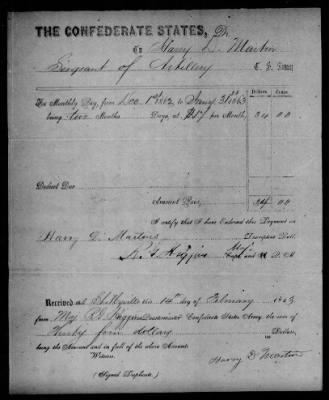 THE CONFEDERATE STATES, Dr.
To Harry D. Martin
Sergeant of Artillery C. S. Army
Dollars Cents
For Monthly Pay, from Dec 1st 1862 to Jany 31st 1863
being two Months Days, at $17 per Month, 34 00
Deduct Due
Amount Paid, 34 00
I certify that I have Endorsed this Payment on
Harry D. Martin's Descriptive Roll.
Maj
Capt and A Q M
Received at Shelbyville this 14th day of February 1863
from Maj Quartermaster Confederate States Army the sum of
thirty four dollars Dollars,
being the Amount and in full of the above Account.
Witness.
Harry D Martin
(Signed Duplicate.)